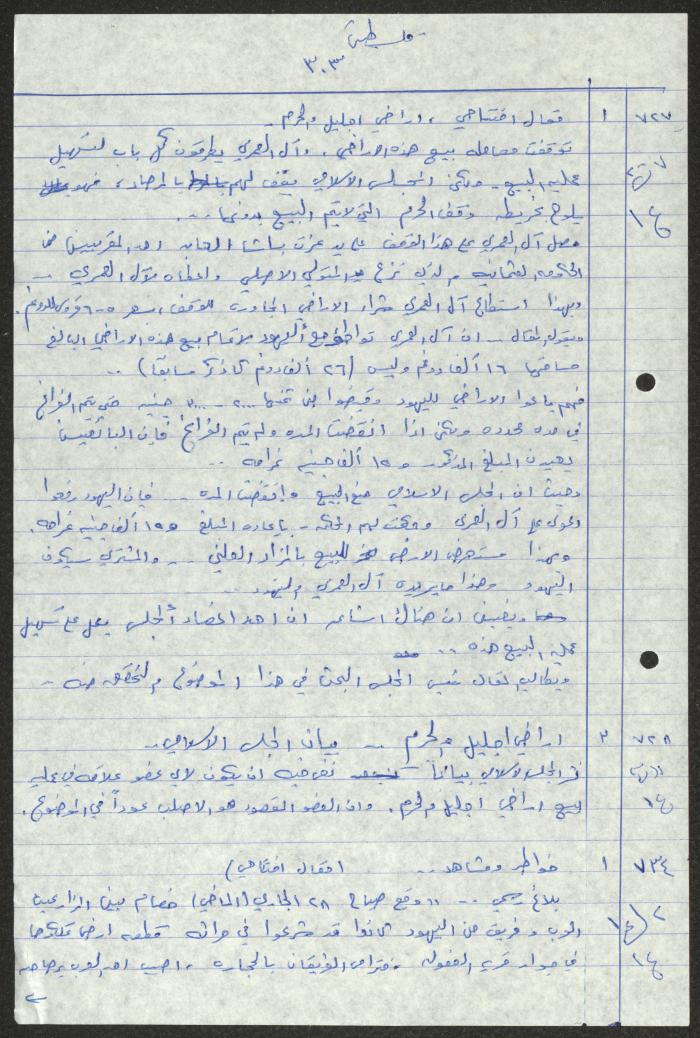 فلسطين
٣٠٣
٧٢٧ ١ مقال افتتاحي، اراضي اجليل والحرم ..
توقفت معامله بيع هذه الاراضي. وآل العمري يطرقون كل باب لتسهيل
عملية البيع - ولكن المجلس الاسلامي يقف لهم بالمرصاد، فهو
يلوح بخريطة وقف الحرم التي لا يتم البيع بدونها ...
حصل آل العمري على هذا الوقف على يد عزت باشا العابد احد المقربين من
الحكومه العثمانيه والذي نزع المتولي الاصلي واعطاه لآل العمري ..
وبهذا استطاع آل العمري شراء الاراضي المجاوره للوقف بسعر قروش للدونم.
ويقول المقال .. ان آل العمري تواطؤ مع اليهود لاتمام بيع هذه الاراضي البالغ
مساحتها ١٦ ألف دونم وليس (٢٦ ألف دونم كما ذكر سابقاً) ..
فهم باعوا الاراضي لليهود وقبضوا من ثمنها جنيه حتى يتم الفراغ
في مده محدده ولكن اذا انقضت المده ولم يتم الفراغ فإن البائعين
يعيدون المبلغ المذكور و ١٥ ألف جنيه غرامه ..
وحيث ان المجلس الاسلامي منع البيع وانقضت المده .. فإن اليهود رفعوا
دعوى على آل العمري وحكمت لهم المحكمه - بإعاده المبلغ و ١٥ ألف جنيه غرامه.
وبهذا ستعرض الارض للبيع بالمزاد العلني .. والمشتري سيكون
اليهود وهذا ما يريده آل العمري واليهود ...
ويضيف ان هناك اشاعه ان احد اعضاء المجلس يعمل على تسهيل
عملية البيع هذه ..
ويطالب المقال رئيس المجلس البحث في هذا الموضوع والتحقق منه ..
٧٢٨ ٢ اراضي اجليل والحرم .. بيان المجلس الاسلامي ..
المجلس الاسلامي بياناً نفى فيه ان يكون لاي عضو علاقه في عملية
بيع اراضي اجليل والحرم. وان العضو المقصود هو الاصلب عوداً في الموضوع.
٧٣٤ ١ خواطر ومشاهد ... (مقال افتتاحي)
بلاغ رسمي .. "وقع صباح ٢٨ الجاري (الماضي) خصام بين المزارعين
العرب وفريق من اليهود كانوا قد شرعوا في حراثه قطعه ارض
في جوار قريه العفوله، فترامى الفريقان بالحجاره، اصيب احد العرب برصاصه